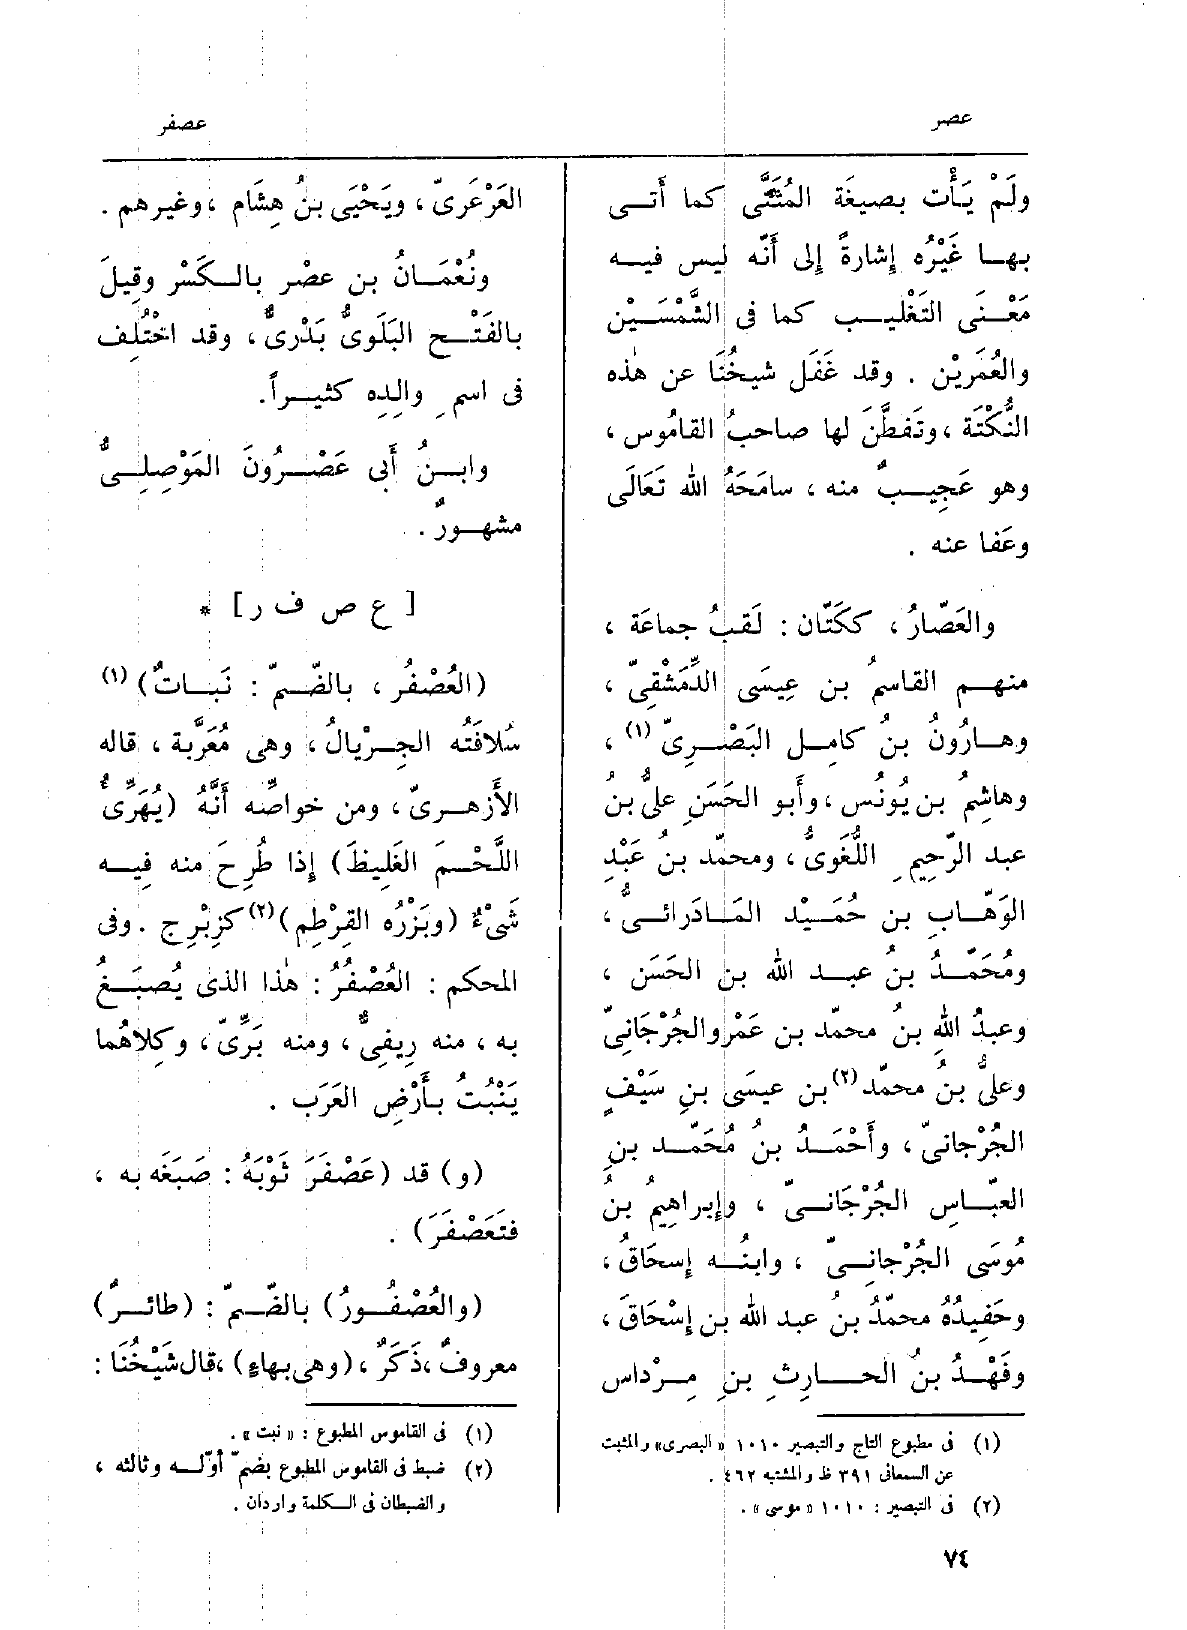 عصر
عصفر
ولَمْ يَأْت بصيغَة المُثَنَّى كما أَتــى
بهــا غَيْرُه إشارةً إلى أَنّه ليس فيــه
مَعْــنَى التَّغليــب كما فى الشَّمْسَيْن
والعُمَرَيْن . وقد غَفَل شيخُنَا عن هٰذه
النُّكْتَة ، وتَفطَّنَ لها صاحبُ القامُوس ،
وهو عَجِيــبٌ منه ، سامَحَهُ الله تَعَالَى
وعَفا عنه .
والعَصّارُ ، ككَتّان : لَقبُ جماعَة ،
منهــم القاسمُ بن عِيسَى الدِّمَشْقىّ ،
وهــارُونُ بنُ كامِــل البَصْــرِىّ (١) ،
وهاشِمُ بن يُونُس ، وأَبو الحَسَنِ علىُّ بنُ
عبد الرّحِيمِ اللُّغَوىُّ ، ومحمّد بنُ عَبْدِ
الوَهّابِ بن حُمَيْد المَــادَرائــىُّ ،
ومُحَمّــدُ بنُ عبــد الله بن الحَسَن ،
وعبدُ اللهِ بنُ محمّد بن عَمْرو الجُرْجَانِىّ
وعلىُّ بنُ محمّد (٢) بن عيسَى بنِ سَيْفٍ
الجُرْجانىّ ، وأَحْمَدُ بنُ مُحَمّد بنِ
العبّــاس الجُرْجَانــىّ ، وإبراهِيمُ بنُ
مُوسَى الجُرْجانِــىّ ، وابنُــه إسحَاقُ ،
وحَفِيدُهُ محمّدُ بنُ عبد الله بن إسْحَاقَ ،
وفَهْــدُ بنُ الحــارِثِ بنِ مِــرْداس
(١) فى مطبوع التاج والتبصير ١٠١٠ « البصرى» والمثبت
عن السمعانى ٣٩١ ظ والمشتبه ٤٦٢ .
(٢) فى التبصير : ١٠١٠ « موسى » .
العَرْعَرىّ ، ويَحْيَى بنُ هِشَام ، وغيرهم .
ونُعْمَــانُ بن عصْر بالــكَسْر وقِيلَ
بالفَتْــح البَلَوىُّ بَدْرىٌّ ، وقد اخْتُلِف
فى اسمِ والِدِه كثيــراً .
وابــنُ أَبى عَصْــرُونَ المَوْصِلــىُّ
مشهــورٌ .
[ ع ص ف ر ] *
(العُصْفُر ، بالضّــمّ : نَبــاتٌ) (١)
سُلافَتُه الجِــرْيالُ ، وهى مُعَرَّبة ، قاله
الأَزهــرىّ ، ومن خواصِّه أَنَّهُ (يُهَرِّئُ
اللَّحْــمَ الغَلِيظَ) إذا طُرِحَ منه فِيــه
شَىْءٌ (وبَزْرُه القِرْطِم)(٢) كزِبْرِج . وفى
المحكم : العُصْفُرُ : هٰذا الذى يُصبَــغُ
به ، منه رِيفىٌّ ، ومنه بَرِّىّ ، وكِلاهُما
يَنْبُتُ بــأَرْضِ العَرَب .
(و) قد (عَصْفَرَ ثَوْبَهُ : صَبَغَه به ،
فتَعَصْفَرَ) .
(والعُصْفُــورُ) بالضّــمّ : (طائــرٌ)
معروفٌ ، ذَكَرٌ ، (وهى بهاءٍ) ، قال شَيْخُنَا :
(١) فى القاموس المطبوع : « نبت » .
(٢) ضبط فى القاموس المطبوع بضمّ أوّلــه وثالثه ،
والضبطان فى الــكلمة واردان .
٧٤